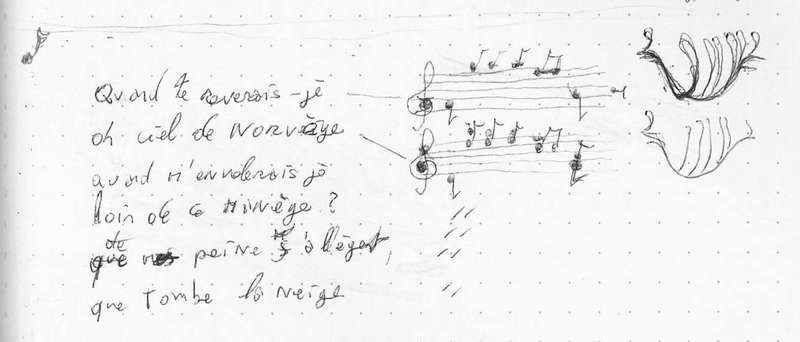 Quand te reverois-je
oh ciel de Norvège
quand m'envolerois-je
loin de ce manège ?
de peine s'allègent,
que tombe la neige